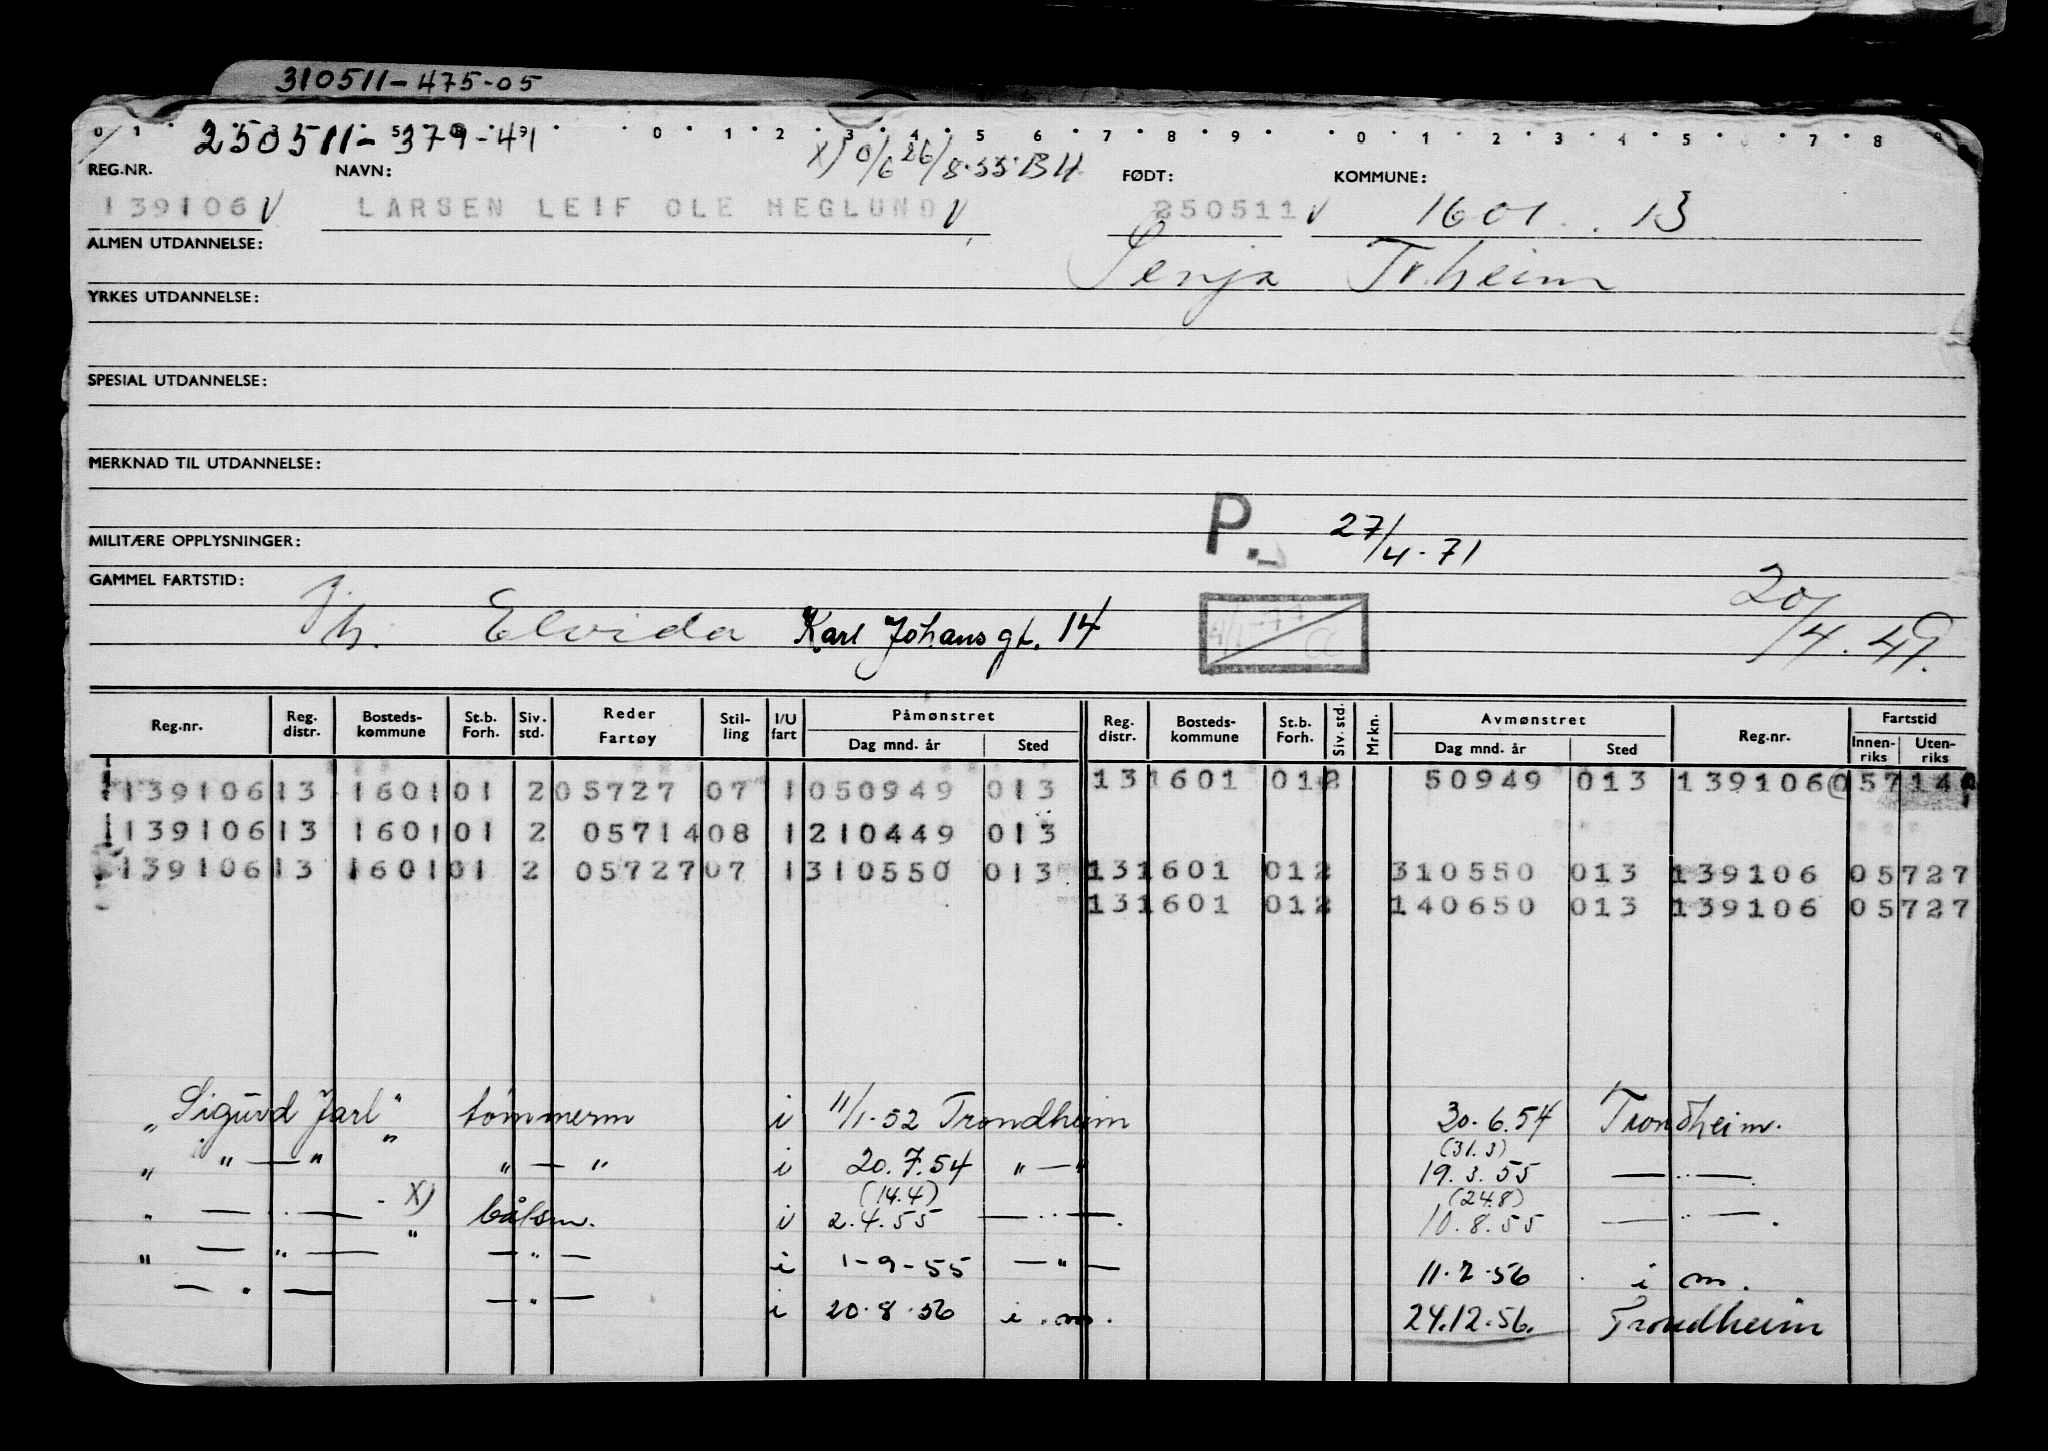 310511-475-05
250511-379-41
0 1 2 3 4 5 6 7 8 9 0 1 2 3 4 5 6 7 8 9
X) 0/6 26/8.55 BH
REG.NR. NAVN: FØDT: KOMMUNE:
139106 V LARSEN LEIF OLE HEGLUND V 250511 V 1601 . 13
ALMEN UTDANNELSE: Senja Tr.heim
YRKES UTDANNELSE:
SPESIAL UTDANNELSE:
MERKNAD TIL UTDANNELSE:
MILITÆRE OPPLYSNINGER: P. 27/4-71
GAMMEL FARTSTID: 20/4.49.
h. Elvida Karl Johans gt. 14
Reg.nr. Reg. distr. Bosteds-kommune St.b. Forh. Siv. std. Reder Fartøy Stil-ling I/U fart Påmønstret Dag mnd. år Sted Reg. distr. Bosteds-kommune St.b. Forh. Siv. std. Mrkn. Avmønstret Dag mnd. år Sted Reg.nr. Fartstid Innen-riks Uten-riks
139106 13 1601 01 2 05727 07 1 050949 013 13 1601 01 2 50949 013 139106 05714
139106 13 1601 01 2 05714 08 1 210449 013
139106 13 1601 01 2 05727 07 1 310550 013 13 1601 01 2 310550 013 139106 05727
13 1601 01 2 140650 013 139106 05727
"Sigurd Jarl" tømmerm i 11/1-52 Trondheim 30.6.54 Trondheim.
" " — " " " — " i 20.7.54 " — " (31.3) 19.3.55 — " —.
" — " — X) " båtsm. i (14.4) 2.4.55 — " —. (24.8) 10.8.55 — " —.
" — " — — " — i 1-9-55 — " — 11.2.56 i m.
— " — — " — i 20.8.56 i.m. 24.12.56. Trondheim